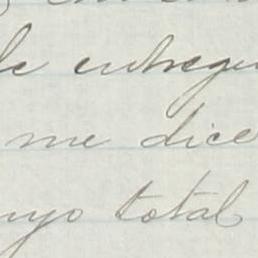 le entregu
me dice
uyo total